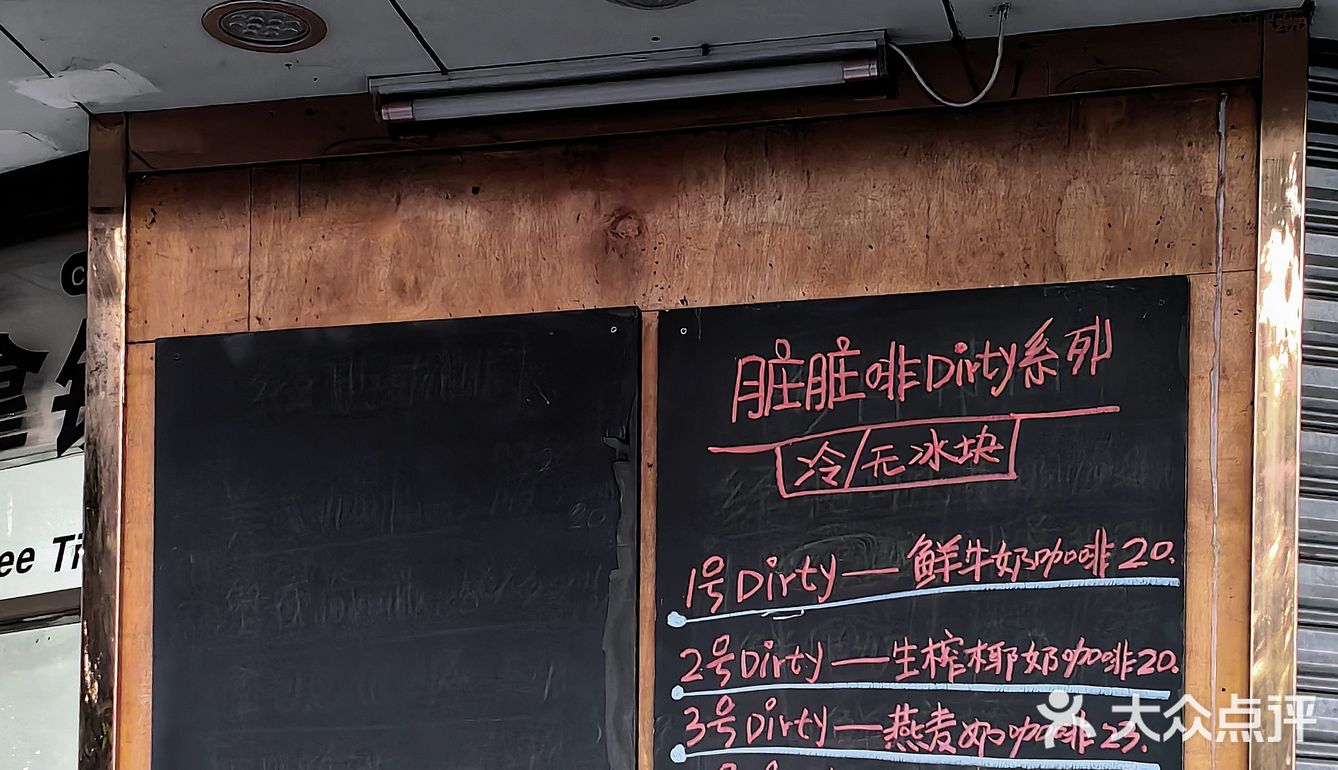 脏脏啡Dirty系列
冷/无冰块
1号Dirty—鲜牛奶咖啡20.
2号Dirty—生榨椰奶咖啡20.
3号Dirty—燕麦奶咖啡23.
ee Ti
大众点评